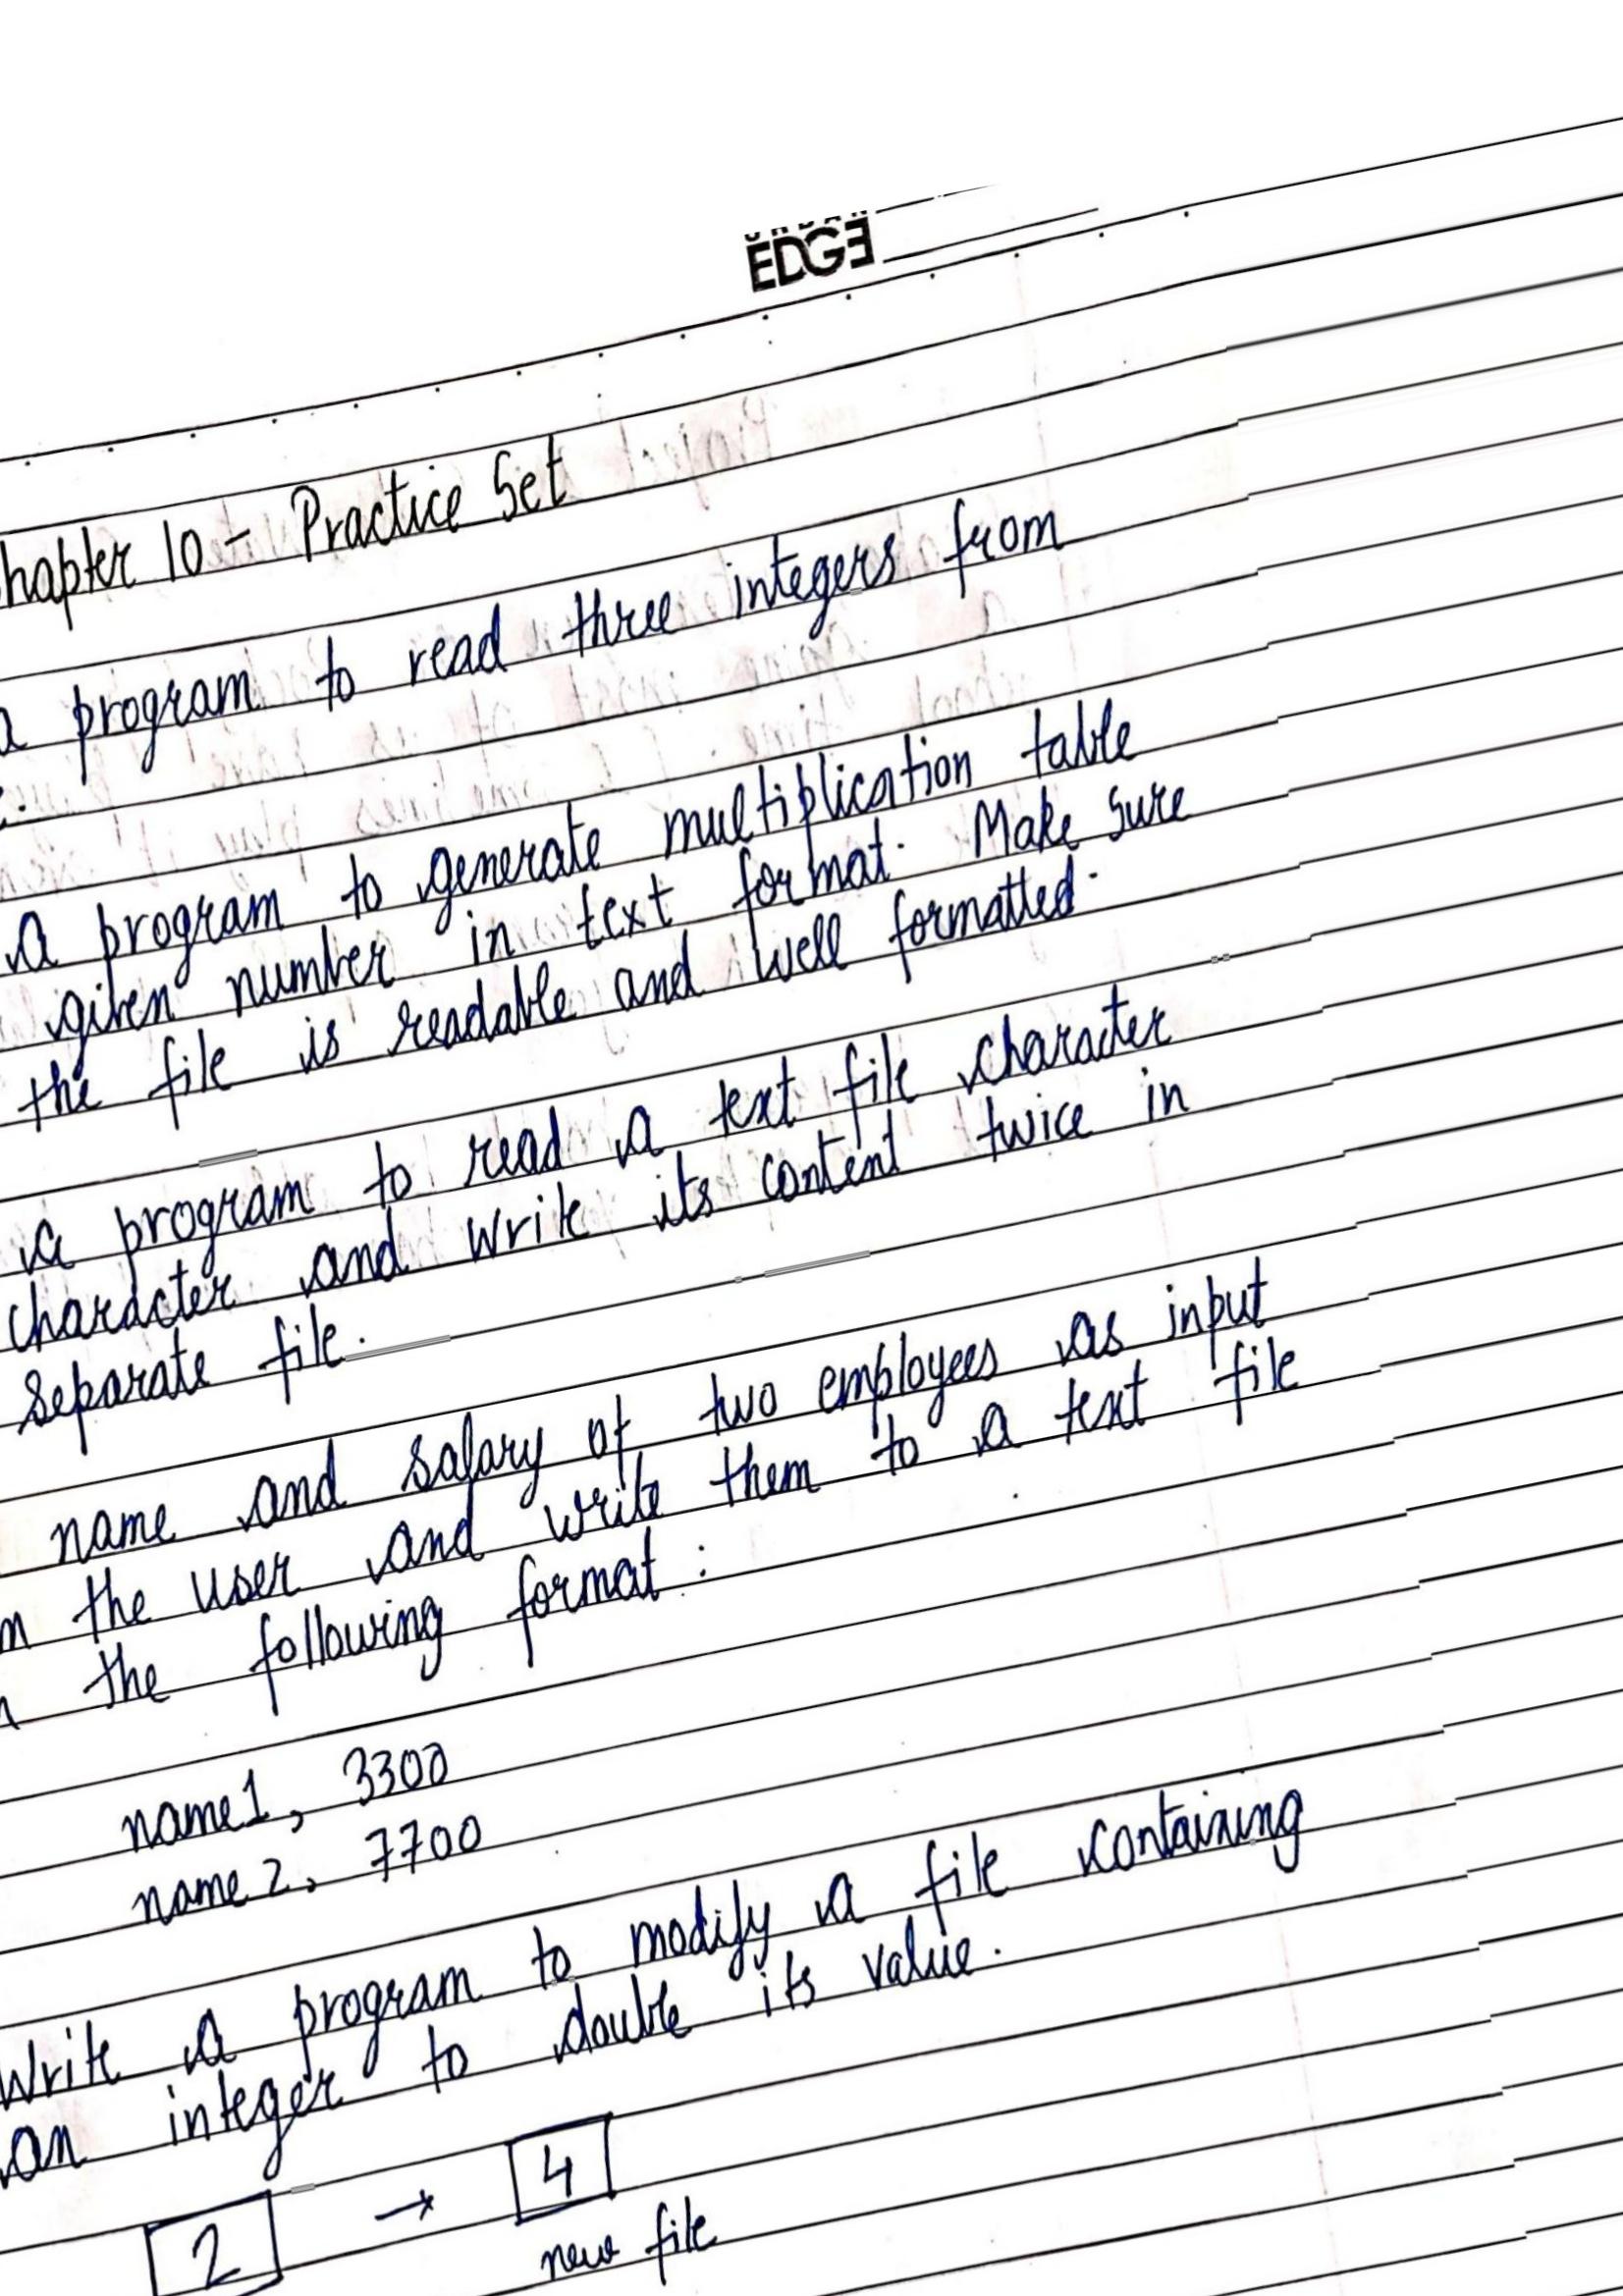 EDGE
hapter 10 - Practice Set
a program to read three integers from
a program to generate multiplication table
given number in text format. Make sure
the file is readable and well formatted.
a program to read a text file character
character and write its content twice in
separate file.
name and salary of two employees as input
m the user and write them to a text file
n the following format :
name1, 3300
name2, 7700
Write a program to modify a file containing
an integer to double its value.
2 → 4
new file